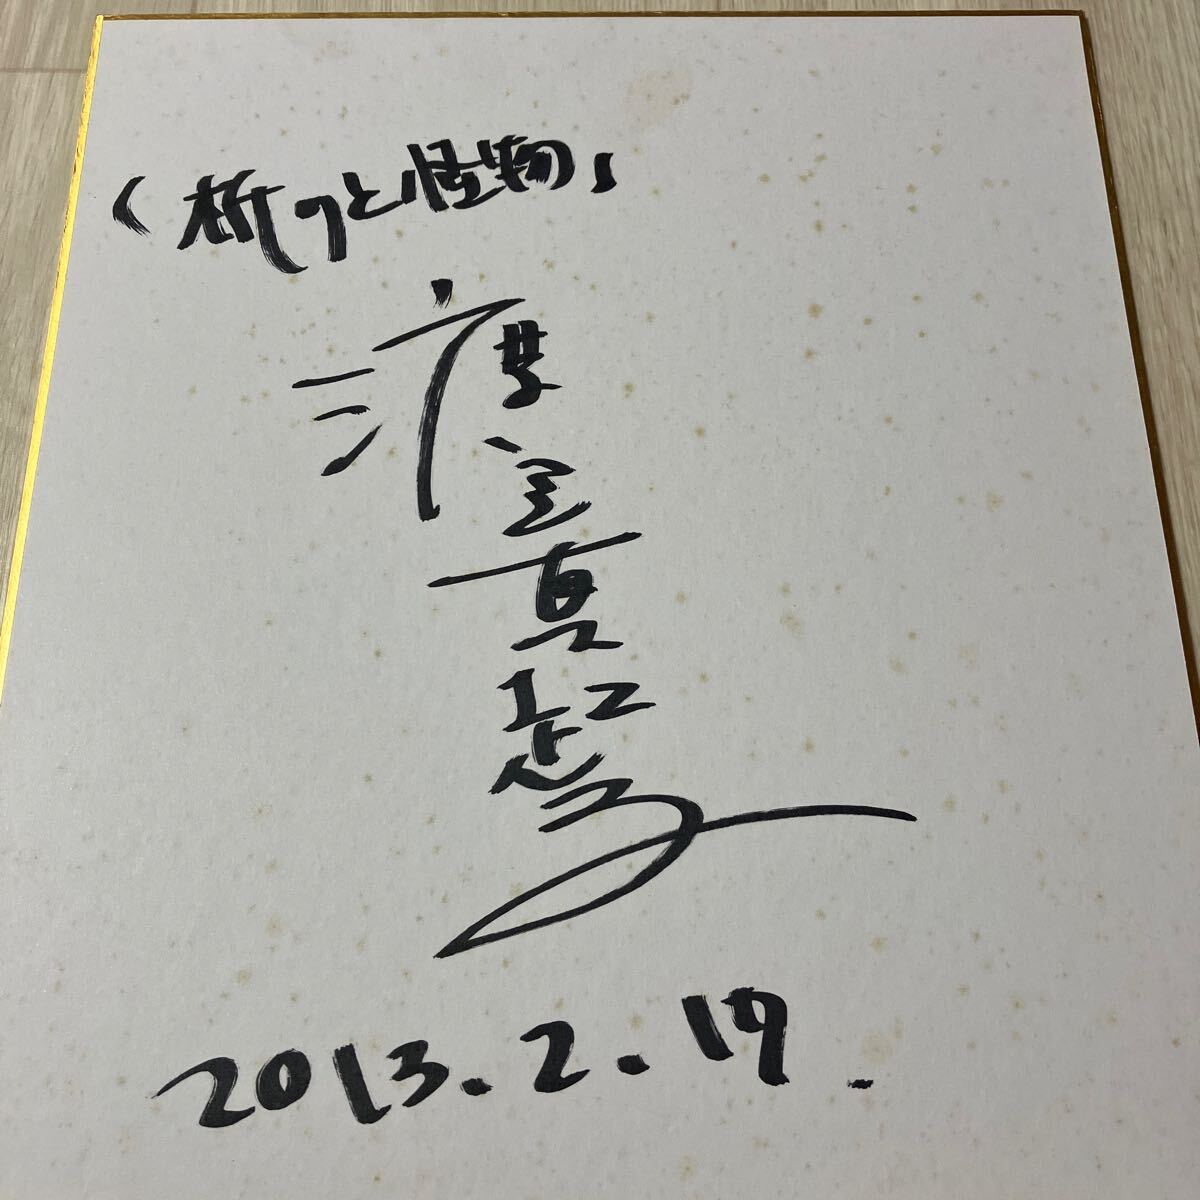 「祈りと怪物」
渡辺真起子
2013.2.19.